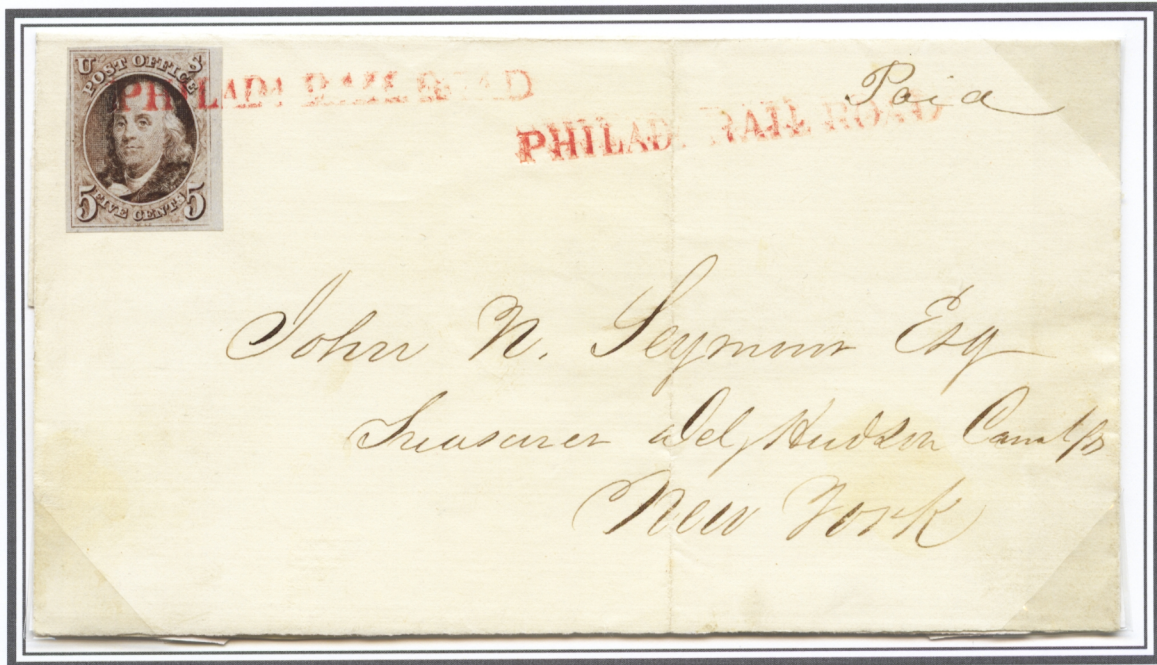 U S
POST OFFICE
5 FIVE CENTS 5
PHILADA RAIL ROAD
PHILADA RAIL ROAD
Paid
John N. Seymour Esq
Treasurer Del, Hudson Canal
New York